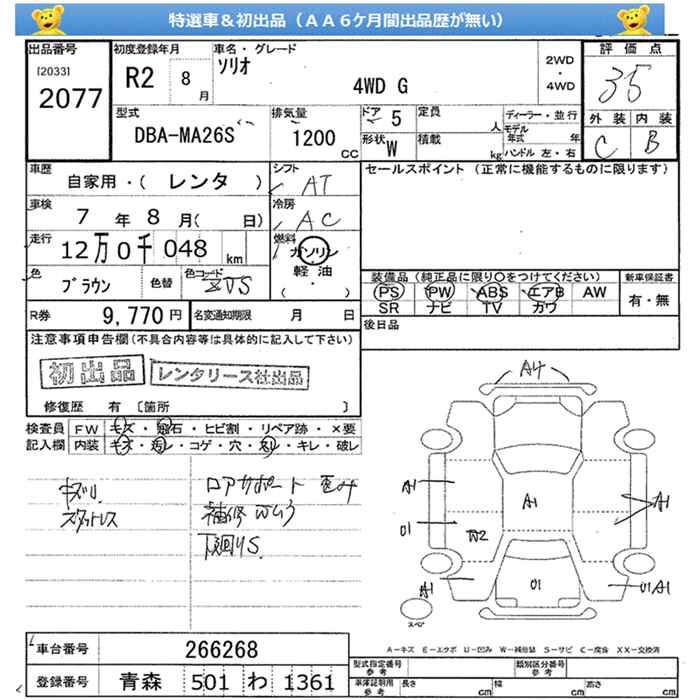 特選車&初出品（ＡＡ６ケ月間出品歴が無い）
出品番号 初度登録年月 車名・グレード 評価点
[2033] 2077 R2 8月 ソリオ 4WD G 2WD・4WD 35
型式 排気量 ドア 5 定員 人 ディーラー・並行 外装 内装
DBA-MA26S 1200 CC 形状 W 積載 kg モデル年式 年 ハンドル 左・右 C B
車歴 シフト セールスポイント（正常に機能するものに限ります）
自家用・（ レンタ ） AT
車検 7年 8月（ 日） 冷房 AC
走行 12万0千048 km 燃料 ガソリン
軽・油
（・）
色 ブラウン 色替 色コード ZVS
装備品（純正品に限り〇をつけてください） 新車保証書
PS PW ABS エアB AW 有・無
SR ナビ TV カワ
R券 9,770円 名変通知期限 月 日 後日品
注意事項申告欄(不具合内容等は具体的に記入して下さい)
初出品 レンタリース社出品
修復歴 有 〔箇所 〕
検査員 FW キズ・飛石・ヒビ割・リペア跡・×要
記入欄 内装 キズ・汚レ・コゲ・穴・スリ・キレ・破レ
キズリ ロアサポート 歪み
スタットレス 補修ワムラ
下回りS
A4
A1 A1 A1
U1 W2
A1 U1 U1A1
スペア
A－キズ E－エクボ U－凹み W－補修跡 S－サビ C－腐食 XX－交換済
車台番号 266268 型式指定番号 参考 類別区分番号 参考
登録番号 青森 501 わ 1361 車庫証明用 参考 長さ cm 幅 cm 高さ cm